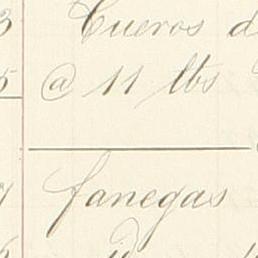 3 Cueros d
5 @ 11 lbs
fanegas
id